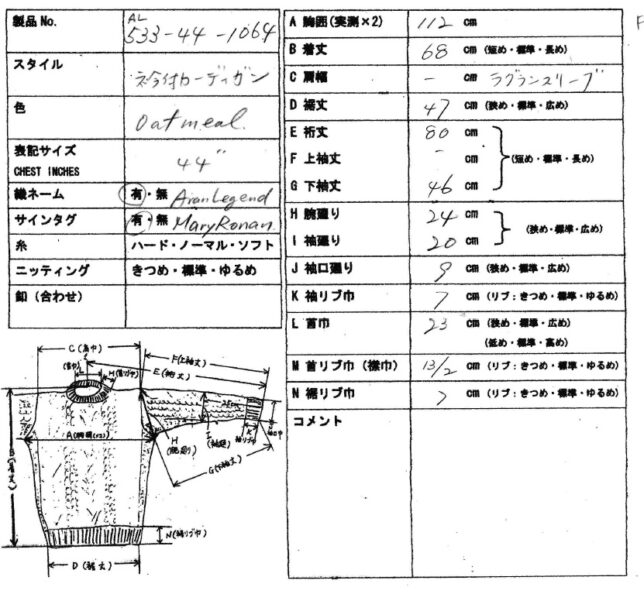 製品No.
AL
533-44-1064
スタイル
衿付カーディガン
色
Oatmeal.
表記サイズ
CHEST INCHES
44"
織ネーム
有・無 Aran Legend
サインタグ
有・無 Mary Ronan
糸
ハード・ノーマル・ソフト
ニッティング
きつめ・標準・ゆるめ
釦(合わせ)
A 胸囲(実測×2) 112 cm
B 着丈 68 cm (短め・標準・長め)
C 肩幅 - cm ラグランスリーブ
D 裾丈 47 cm (狭め・標準・広め)
E 裄丈 80 cm
F 上袖丈 - cm (短め・標準・長め)
G 下袖丈 46 cm
H 腕廻り 24 cm
(狭め・標準・広め)
I 袖廻り 20 cm
J 袖口廻り 9 cm (狭め・標準・広め)
K 袖リブ巾 7 cm (リブ:きつめ・標準・ゆるめ)
L 首巾 23 cm (狭め・標準・広め)
(低め・標準・高め)
M 首リブ巾(襟巾) 13/2 cm (リブ:きつめ・標準・ゆるめ)
N 裾リブ巾 7 cm (リブ:きつめ・標準・ゆるめ)
コメント
C(肩巾)
F(上袖丈)
E(裄丈)
H
I
K
G(下袖丈)
N(裾リブ巾)
D(裾丈)